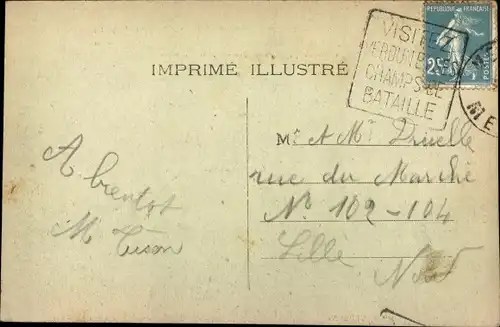 RÉPUBLIQUE FRANÇAISE
25
POSTES
VISITEZ
VERDUN ET SES
CHAMPS DE
BATAILLE
ME
IMPRIMÉ ILLUSTRÉ
Mr & Me Druelle
rue du Marché
No 102-104
Lille
Nord
A bientot
M